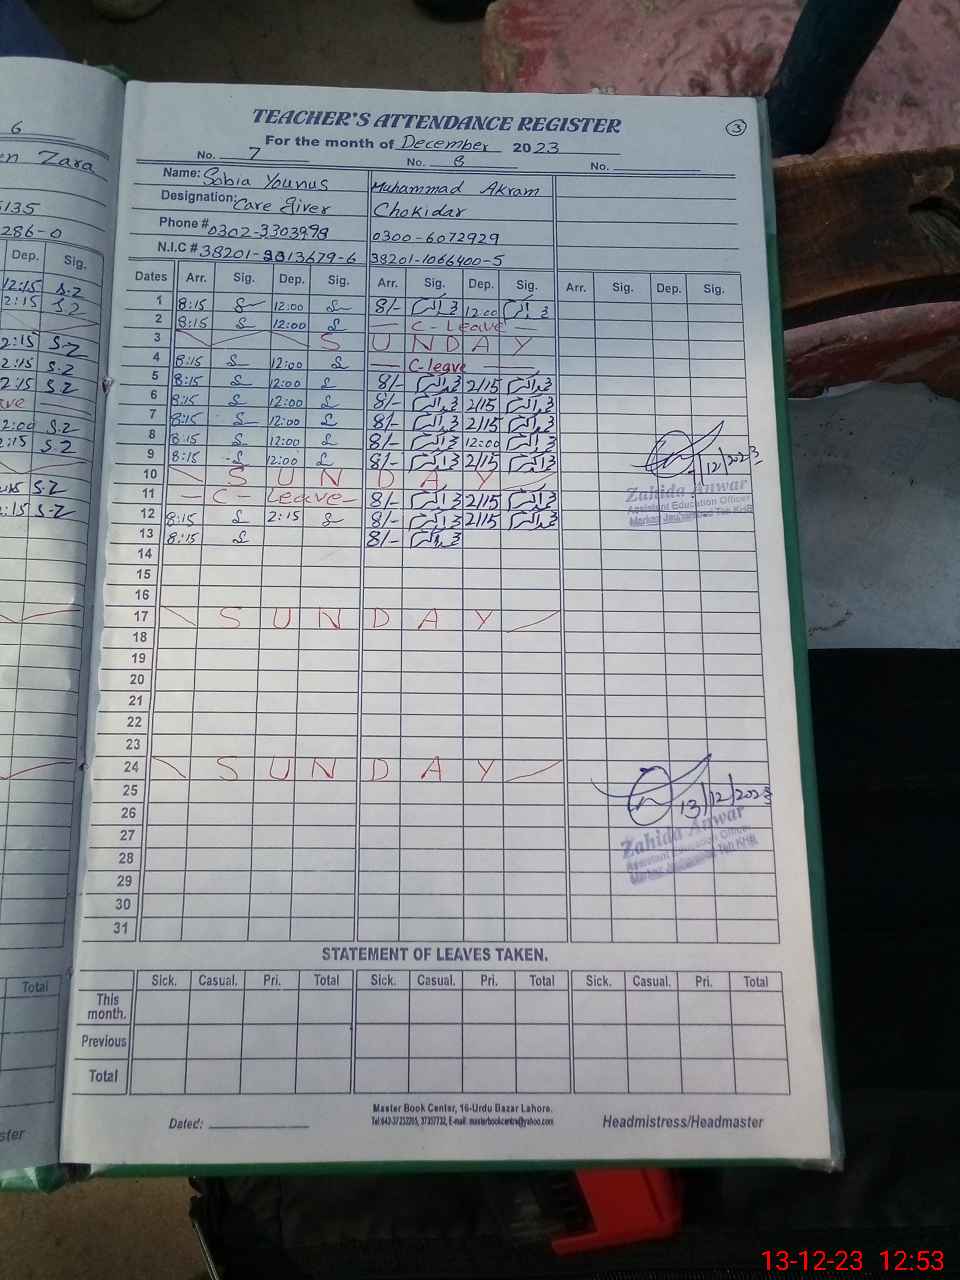 6
Zara
5135
286-0
Dep. Sig.
12:15 S.Z
2:15 S.Z
2:15 S.Z
2:15 S.Z
2:15 S.Z
2:00 S.Z
2:15 S.Z
S.Z
2:15 S.Z
Total
TEACHER'S ATTENDANCE REGISTER
3
For the month of December 2023
No. 7 No. 8 No.
Name: Sobia Younus Muhammad Akram
Designation: Care giver Chokidar
Phone # 0302-3303993 0300-6072929
N.I.C # 38201-2013679-6 38201-1066400-5
Dates Arr. Sig. Dep. Sig. Arr. Sig. Dep. Sig. Arr. Sig. Dep. Sig.
1 8:15 S 12:00 S 8/- اکرم 12:00 اکرم
2 8:15 S 12:00 S — C-Leave —
3 S U N D A Y
4 8:15 S 12:00 S — C-leave —
5 8:15 S 12:00 S 8/- اکرم 2/15 اکرم
6 8:15 S 12:00 S 8/- اکرم 2/15 اکرم
7 8:15 S 12:00 S 8/- اکرم 2/15 اکرم
8 8:15 S 12:00 S 8/- اکرم 12:00 اکرم
9 8:15 S 12:00 S 8/- اکرم 2/15 اکرم
10 S U N D A Y
11 — C- Leave — 8/- اکرم 2/15 اکرم
12 8:15 S 2:15 S 8/- اکرم 2/15 اکرم
13 8:15 S 8/- اکرم
14
15
16
17 S U N D A Y
18
19
20
21
22
23
24 S U N D A Y
25
26
27
28
29
30
31
12/2023
Zahida Anwar
Assistant Education Officer
Markaz
13/12/2023
Zahida Anwar
Assistant Education Officer
Markaz
STATEMENT OF LEAVES TAKEN.
Sick. Casual. Pri. Total Sick. Casual. Pri. Total Sick. Casual. Pri. Total
This month.
Previous
Total
Master Book Center, 16-Urdu Bazar Lahore.
Dated: Headmistress/Headmaster
13-12-23 12:53